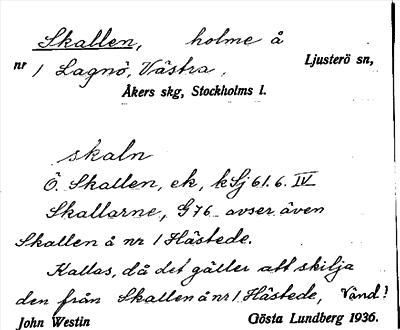 Skallen, holme å
Ljusterö sn,
nr 1 Lagnö, Västra,
Åkers skg, Stockholms l.
skaln
Ö. Skallen, ek, kSj 61. 6. IV
Skallarne, G76 avser även
Skallen å nr 1 Hästede.
Kallas, då det gäller att skilja
den från Skallen å nr 1 Hästede, Vänd!
John Westin Gösta Lundberg 1936.